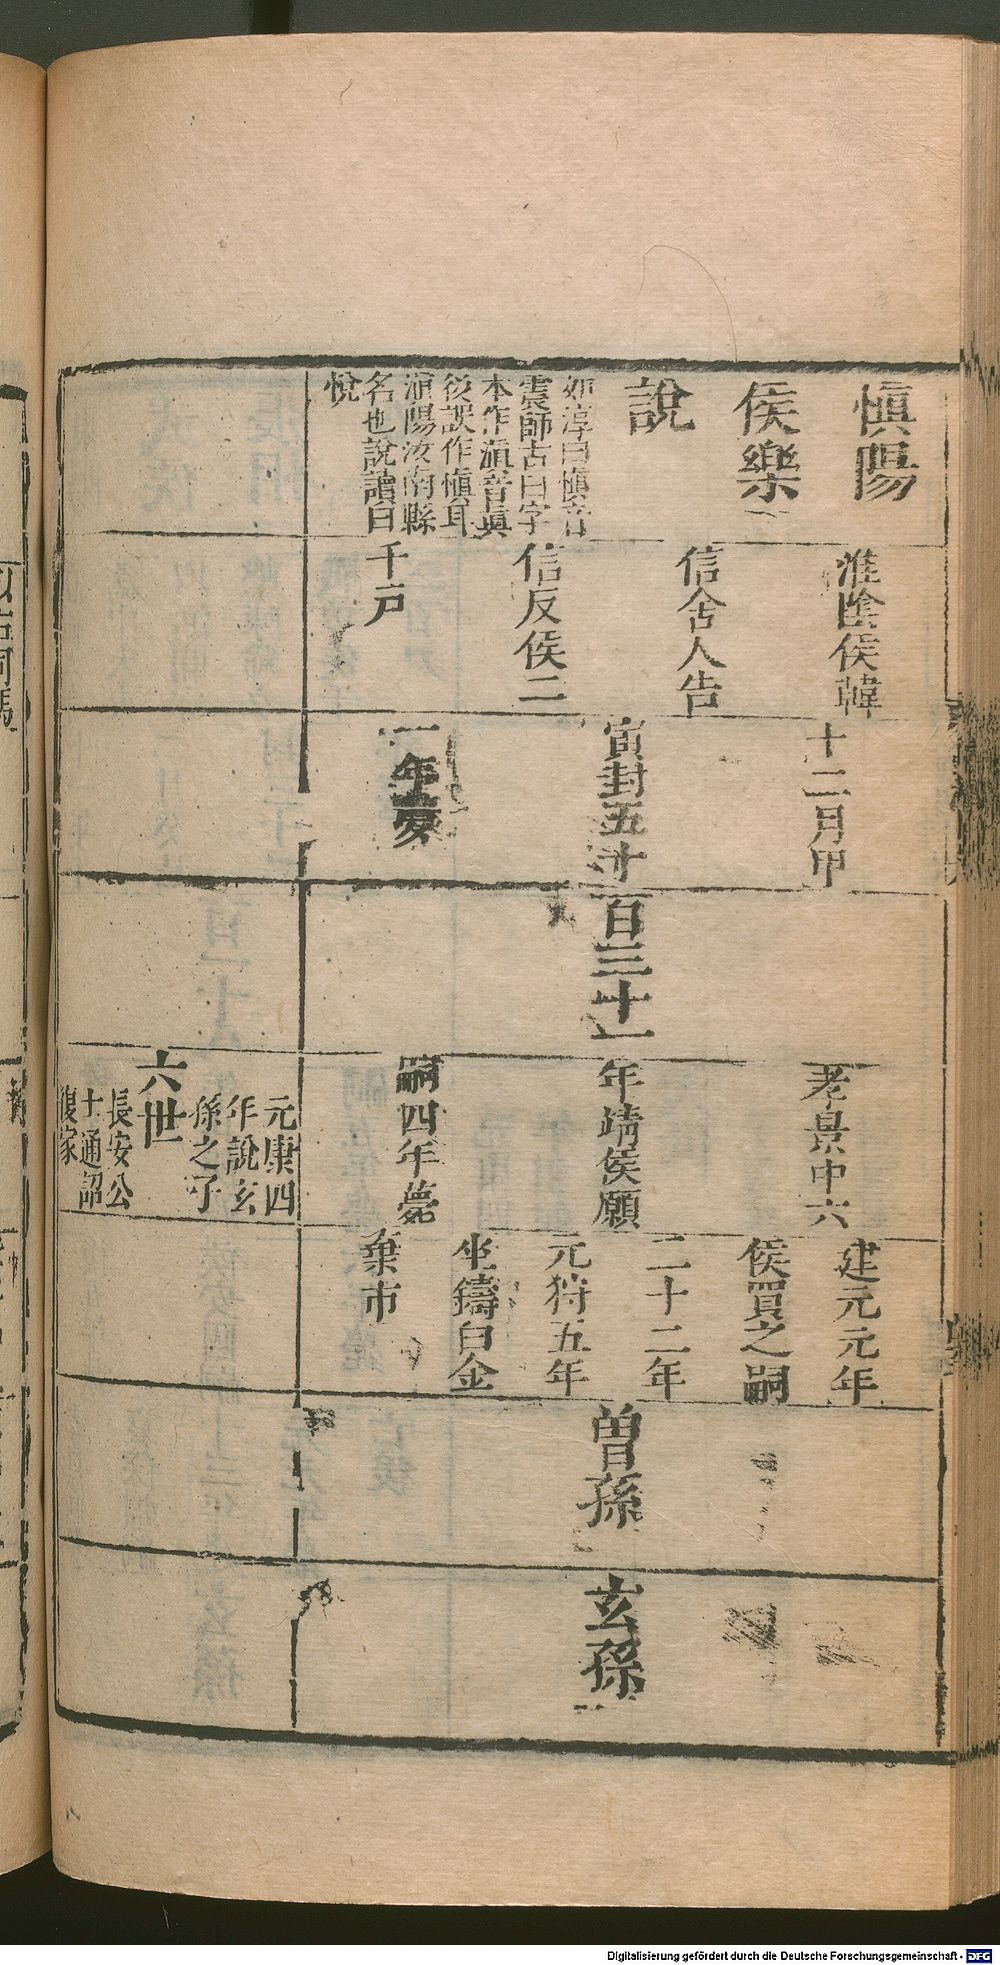 慎陽
侯樂
說
如淳曰慎音
震師古曰字
本作滇音真
後誤作慎耳
滇陽汝南縣
名也說讀曰
悅
淮陰侯韓
信舍人告
信反侯二
千戶
十二月甲
寅封五十
一年薨
百三十一
孝景中六
年靖侯願
嗣四年薨
元康四
年說玄
孫之子
六世
長安公
士通詔
復家
建元元年
侯買之嗣
二十二年
元狩五年
坐鑄白金
棄市
曾孫
玄孫
Digitalisierung gefördert durch die Deutsche Forschungsgemeinschaft - DFG